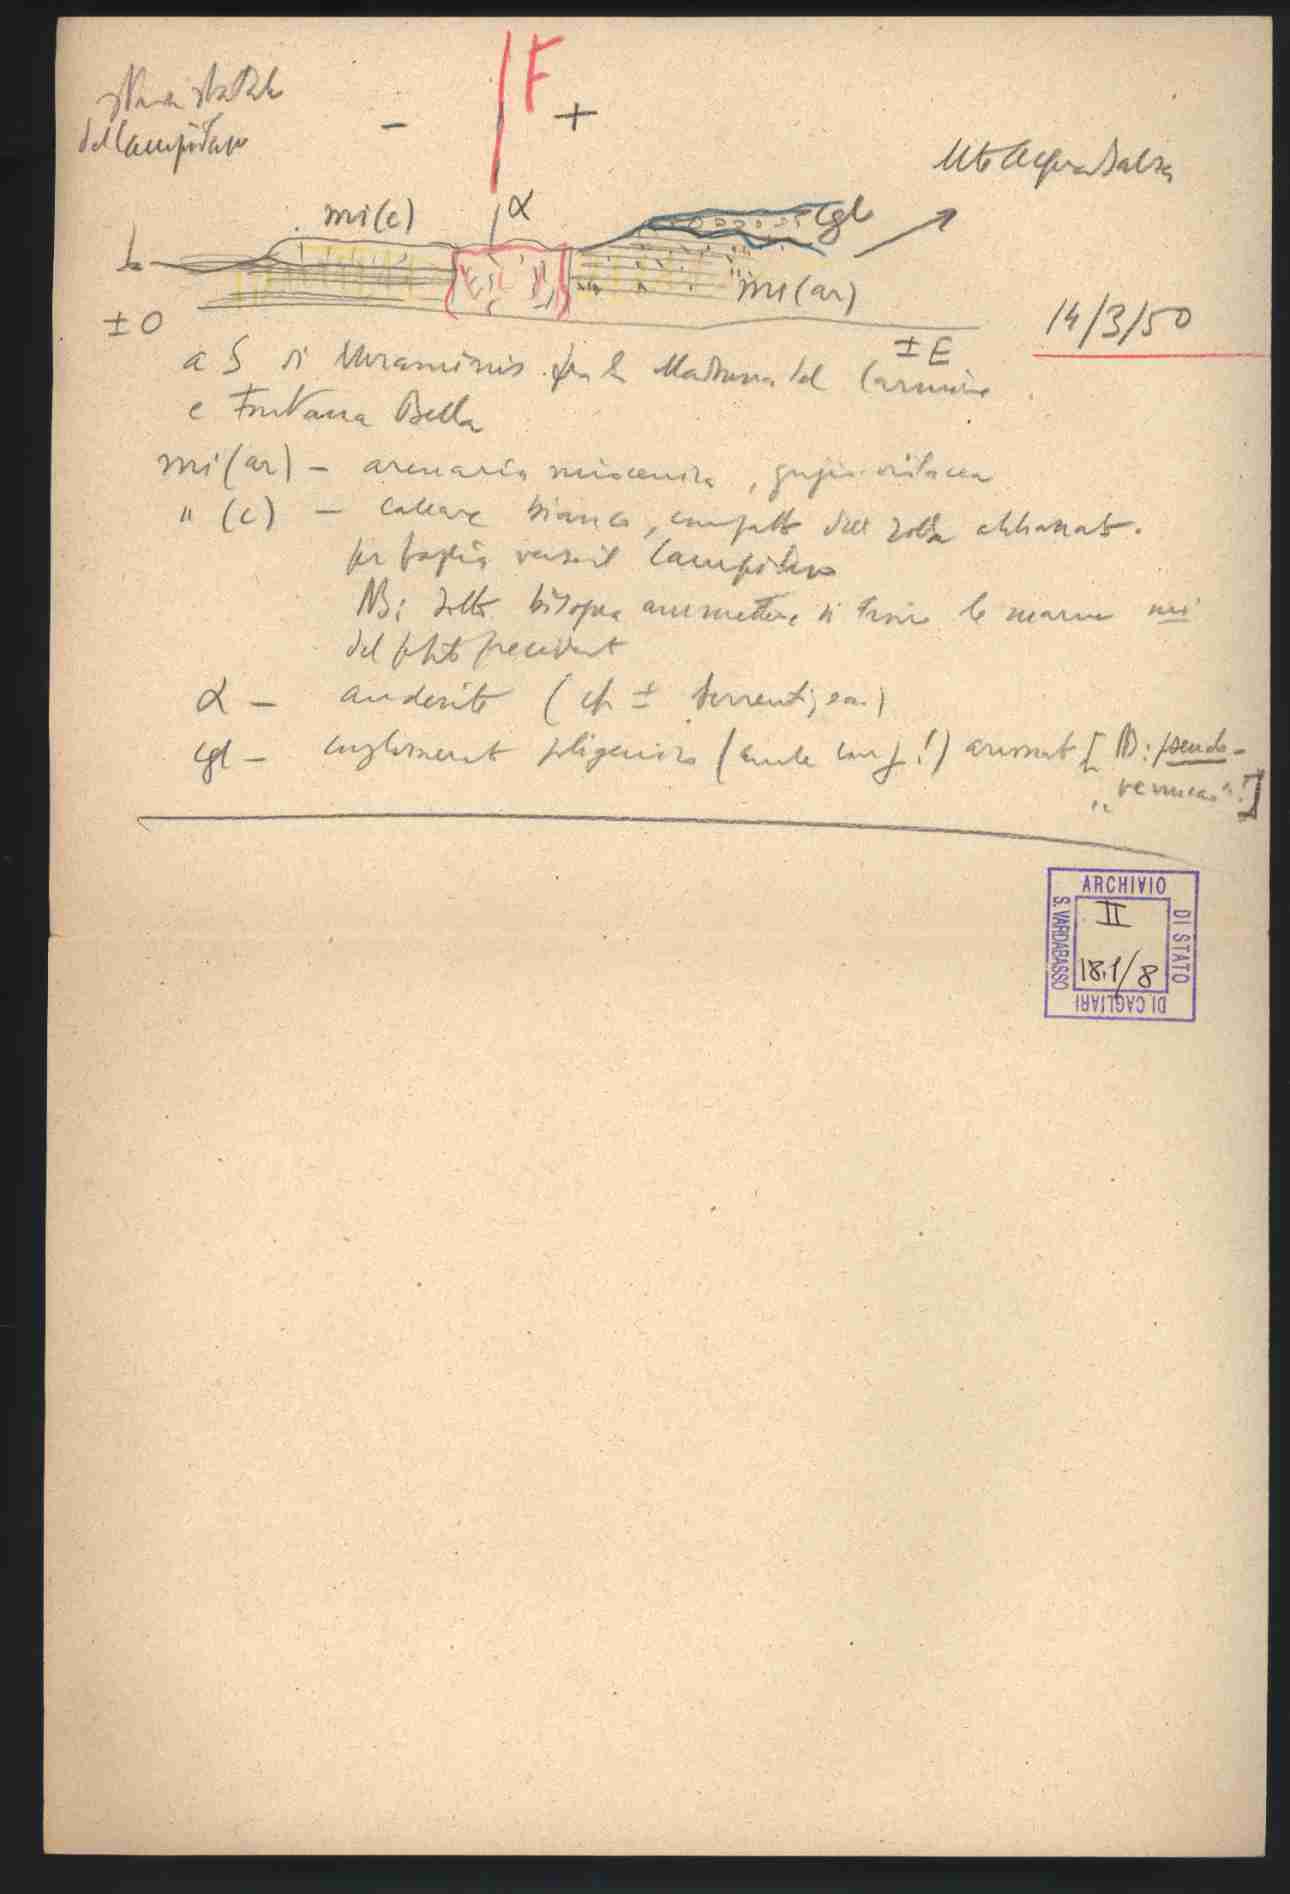 Strada statale
del Campidano
F
-
+
Mte Acqua Salsa
mi(c)
α
cgl
mi(ar)
±O
±E
14/3/50
a S di Uraminis fra la Madonna del Carmine
e Funtana Bella
mi(ar) - arenaria miocenica, grigio
" (c) - calcare bianco, compatto della zolla abbassata
per faglia verso il Campidano
NB: sotto bisogna ammettere di trovare le marne mi
del precedente
α - andesite ( ± Serrenti, ecc.)
cgl - conglomerato poligenico ( ) arrossato [NB: pseudo-
"verrucano"!]
ARCHIVIO
DI STATO
DI CAGLIARI
S. VARDABASSO
II
18.1/8